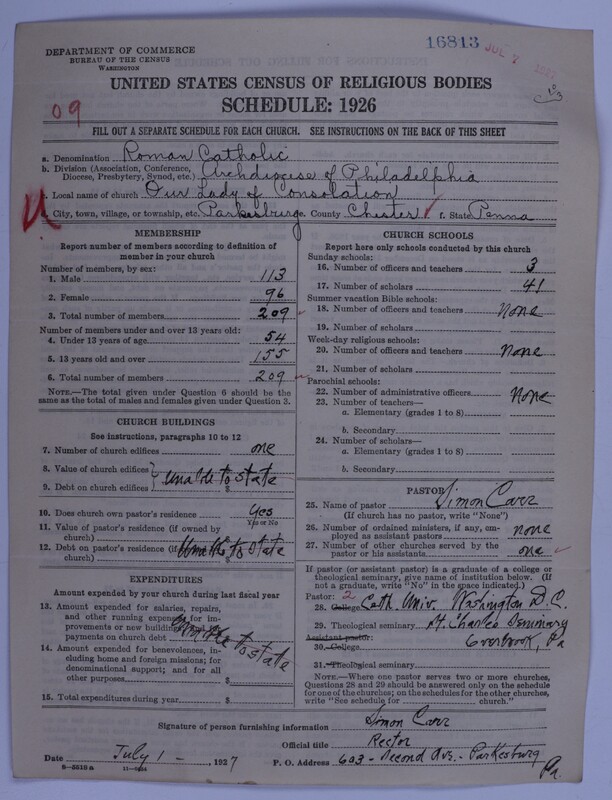 16813 JUL 7 1927
DEPARTMENT OF COMMERCE
BUREAU OF THE CENSUS
WASHINGTON
UNITED STATES CENSUS OF RELIGIOUS BODIES
09
SCHEDULE: 1926
FILL OUT A SEPARATE SCHEDULE FOR EACH CHURCH. SEE INSTRUCTIONS ON THE BACK OF THIS SHEET
a. Denomination Roman Catholic
b. Division (Association, Conference, Diocese, Presbytery, Synod, etc.) Archdiocese of Philadelphia
c. Local name of church Our Lady of Consolation
City, town, village, or township, etc. Parkesburg e. County Chester f. State Penna
MEMBERSHIP
Report number of members according to definition of
member in your church
Number of members, by sex:
1. Male 113
2. Female 96
3. Total number of members 209
Number of members under and over 13 years old:
4. Under 13 years of age 54
5. 13 years old and over 155
6. Total number of members 209
NOTE.—The total given under Question 6 should be the
same as the total of males and females given under Question 3.
CHURCH BUILDINGS
See instructions, paragraphs 10 to 12
7. Number of church edifices one
8. Value of church edifices
9. Debt on church edifices unable to state $
10. Does church own pastor's residence? Yes
Yes or No
11. Value of pastor's residence (if owned by
church)
12. Debt on pastor's residence (if Unable to State
church) $
EXPENDITURES
Amount expended by your church during last fiscal year
13. Amount expended for salaries, repairs,
and other running expenses; for im-
provements or new buildings;
payments on church debt unable to state
14. Amount expended for benevolences, in-
cluding home and foreign missions; for
denominational support; and for all
other purposes $
15. Total expenditures during year $
CHURCH SCHOOLS
Report here only schools conducted by this church
Sunday schools:
16. Number of officers and teachers 3
17. Number of scholars 41
Summer vacation Bible schools:
18. Number of officers and teachers None
19. Number of scholars
Week-day religious schools:
20. Number of officers and teachers None
21. Number of scholars
Parochial schools:
22. Number of administrative officers None
23. Number of teachers—
a. Elementary (grades 1 to 8)
b. Secondary
24. Number of scholars—
a. Elementary (grades 1 to 8)
b. Secondary
PASTOR
25. Name of pastor Simon Carr
(If church has no pastor, write "None")
26. Number of ordained ministers, if any, em-
ployed as assistant pastors none
27. Number of other churches served by the
pastor or his assistants one
If pastor (or assistant pastor) is a graduate of a college or
theological seminary, give name of institution below. (If
not a graduate, write "No" in the space indicated.)
Pastor: 2
28. College Cath. Univ. Washington D.C.
29. Theological seminary St. Charles Seminary
Assistant pastor: Overbrook, Pa
30. College
31. Theological seminary
NOTE.—Where one pastor serves two or more churches,
Questions 28 and 29 should be answered only on the schedule
for one of the churches; on the schedules for the other churches,
write "See schedule for church."
Signature of person furnishing information Simon Carr
Official title Rector
Date July 1 - , 1927 P. O. Address 603 - Second Ave. - Parkesburg
Pa.